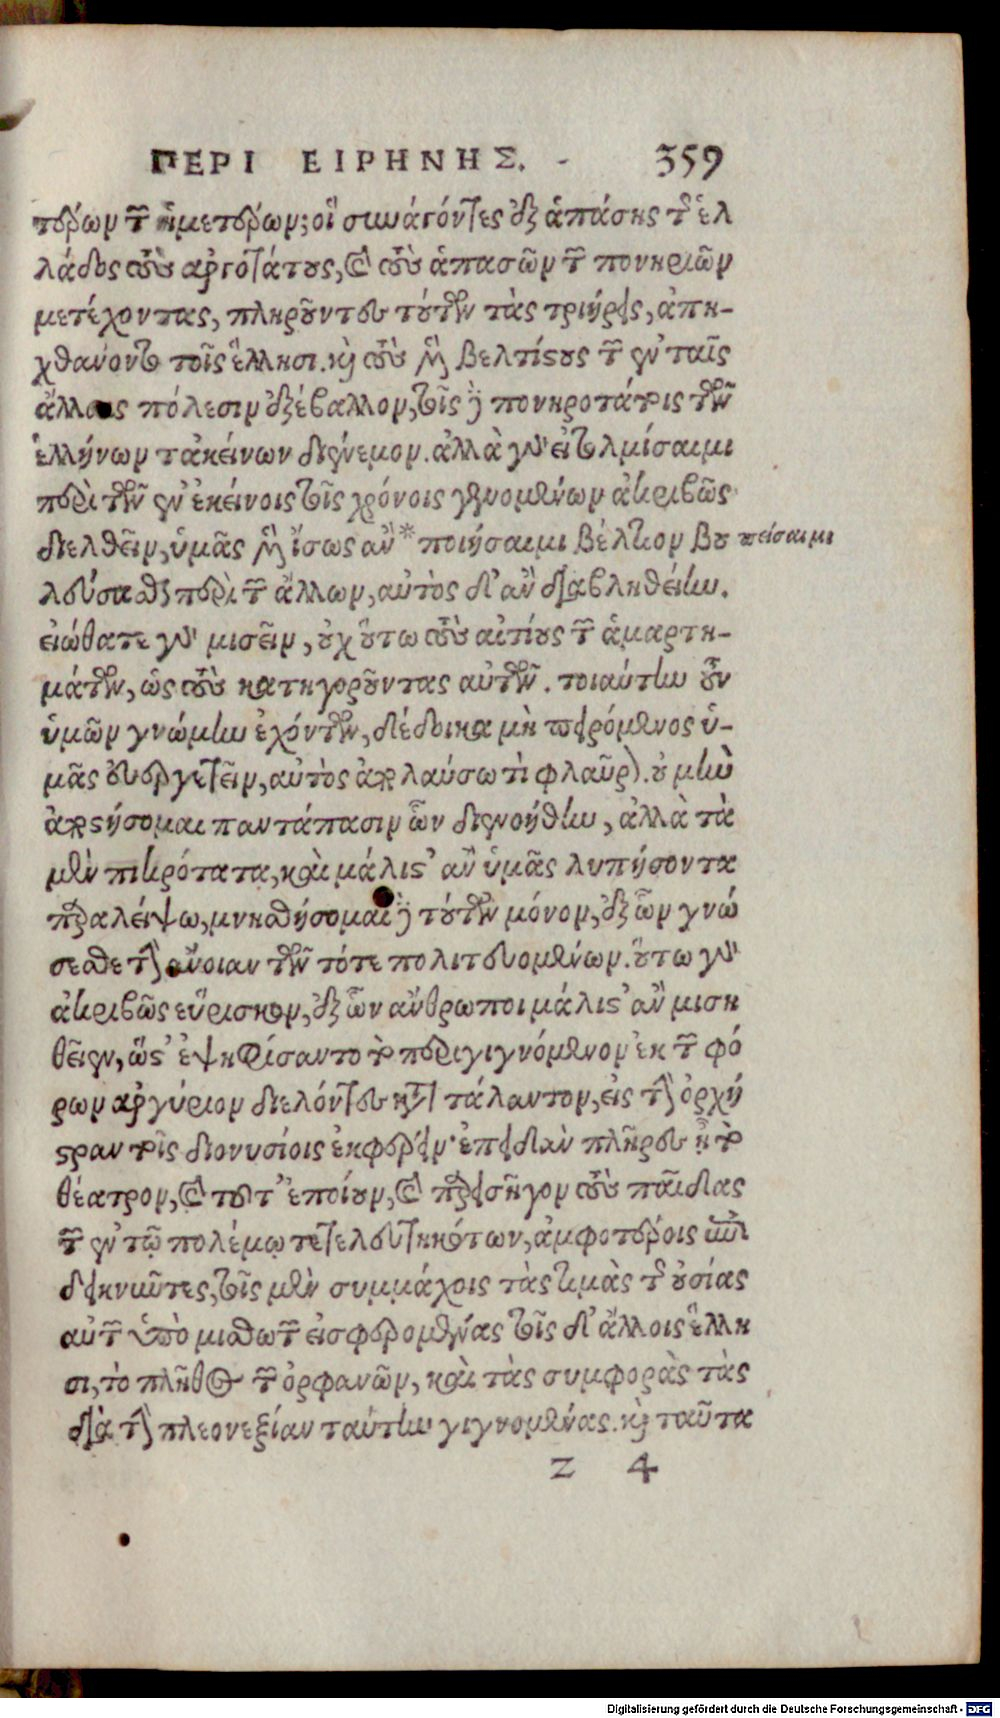 ΠΕΡΙ ΕΙΡΗΝΗΣ. - 359
τέρων τῶν ἡμετέρων; οἳ συνάγοντες ἐξ ἁπάσης τῆς ἑλ
λάδος τοὺς ἀργοτάτους, καὶ τοὺς ἁπασῶν τῶν πονηριῶν
μετέχοντας, πληροῦντες τούτων τὰς τριήρεις, ἀπη-
χθάνοντο τοῖς ἕλλησι. καὶ τοὺς μὲν βελτίστους τῶν ἐν ταῖς
ἄλλαις πόλεσιν ἐξέβαλλον, τοῖς δὲ πονηροτάτοις τῶν
ἑλλήνων τἀκείνων διένεμον. ἀλλὰ γὰρ εἰ τολμήσαιμι
περὶ τῶν ἐν ἐκείνοις τοῖς χρόνοις γενομένων ἀκριβῶς
διελθεῖν, ὑμᾶς μὲν ἴσως ἂν * ποιήσαιμι βέλτιον βου πείσαιμι
λεύσασθαι περὶ τῶν ἄλλων, αὐτὸς δ' ἂν διαβληθείην.
εἰώθατε γὰρ μισεῖν, οὐχ οὕτω τοὺς αἰτίους τῶν ἁμαρτη-
μάτων, ὡς τοὺς κατηγοροῦντας αὐτῶν. τοιαύτην οὖν
ὑμῶν γνώμην ἐχόντων, δέδοικα μὴ πειρόμενος ὑ-
μᾶς εὐεργετεῖν, αὐτὸς ἀπολαύσω τι φλαῦρον. οὐ μὴν
ἀποστήσομαι παντάπασιν ὧν διενοήθην, ἀλλὰ τὰ
μὲν πικρότατα, καὶ μάλιστ' ἂν ὑμᾶς λυπήσοντα
παραλείψω, μνησθήσομαι δὲ τούτων μόνον, ἐξ ὧν γνώ
σεσθε τὴν ἄνοιαν τῶν τότε πολιτευομένων. οὕτω γὰρ
ἀκριβῶς εὕρισκον, ἐξ ὧν ἄνθρωποι μάλιστ' ἂν μιση
θεῖεν, ὥστ' ἐψηφίσαντο τὸ περιγιγνόμενον ἐκ τῶν φό
ρων ἀργύριον διελόντες κατὰ τάλαντον, εἰς τὴν ὀρχή
στραν τοῖς διονυσίοις ἐκφέρειν· ἐπειδὰν πλῆρες ᾖ τὸ
θέατρον, καὶ τοῦτ' ἐποίουν, καὶ παρεισῆγον τοὺς παῖδας
τῶν ἐν τῷ πολέμῳ τετελευτηκότων, ἀμφοτέροις ἐπι
δεικνῦντες, τοῖς μὲν συμμάχοις τὰς τιμὰς τῆς οὐσίας
αὐτῶν ὑπὸ μισθωτῶν εἰσφερομένας τοῖς δ' ἄλλοις ἕλλη
σι, τὸ πλῆθος τῶν ὀρφανῶν, καὶ τὰς συμφορὰς τὰς
διὰ τὴν πλεονεξίαν ταύτην γιγνομένας. καὶ ταῦτα
Z 4
Digitalisierung gefördert durch die Deutsche Forschungsgemeinschaft - DFG